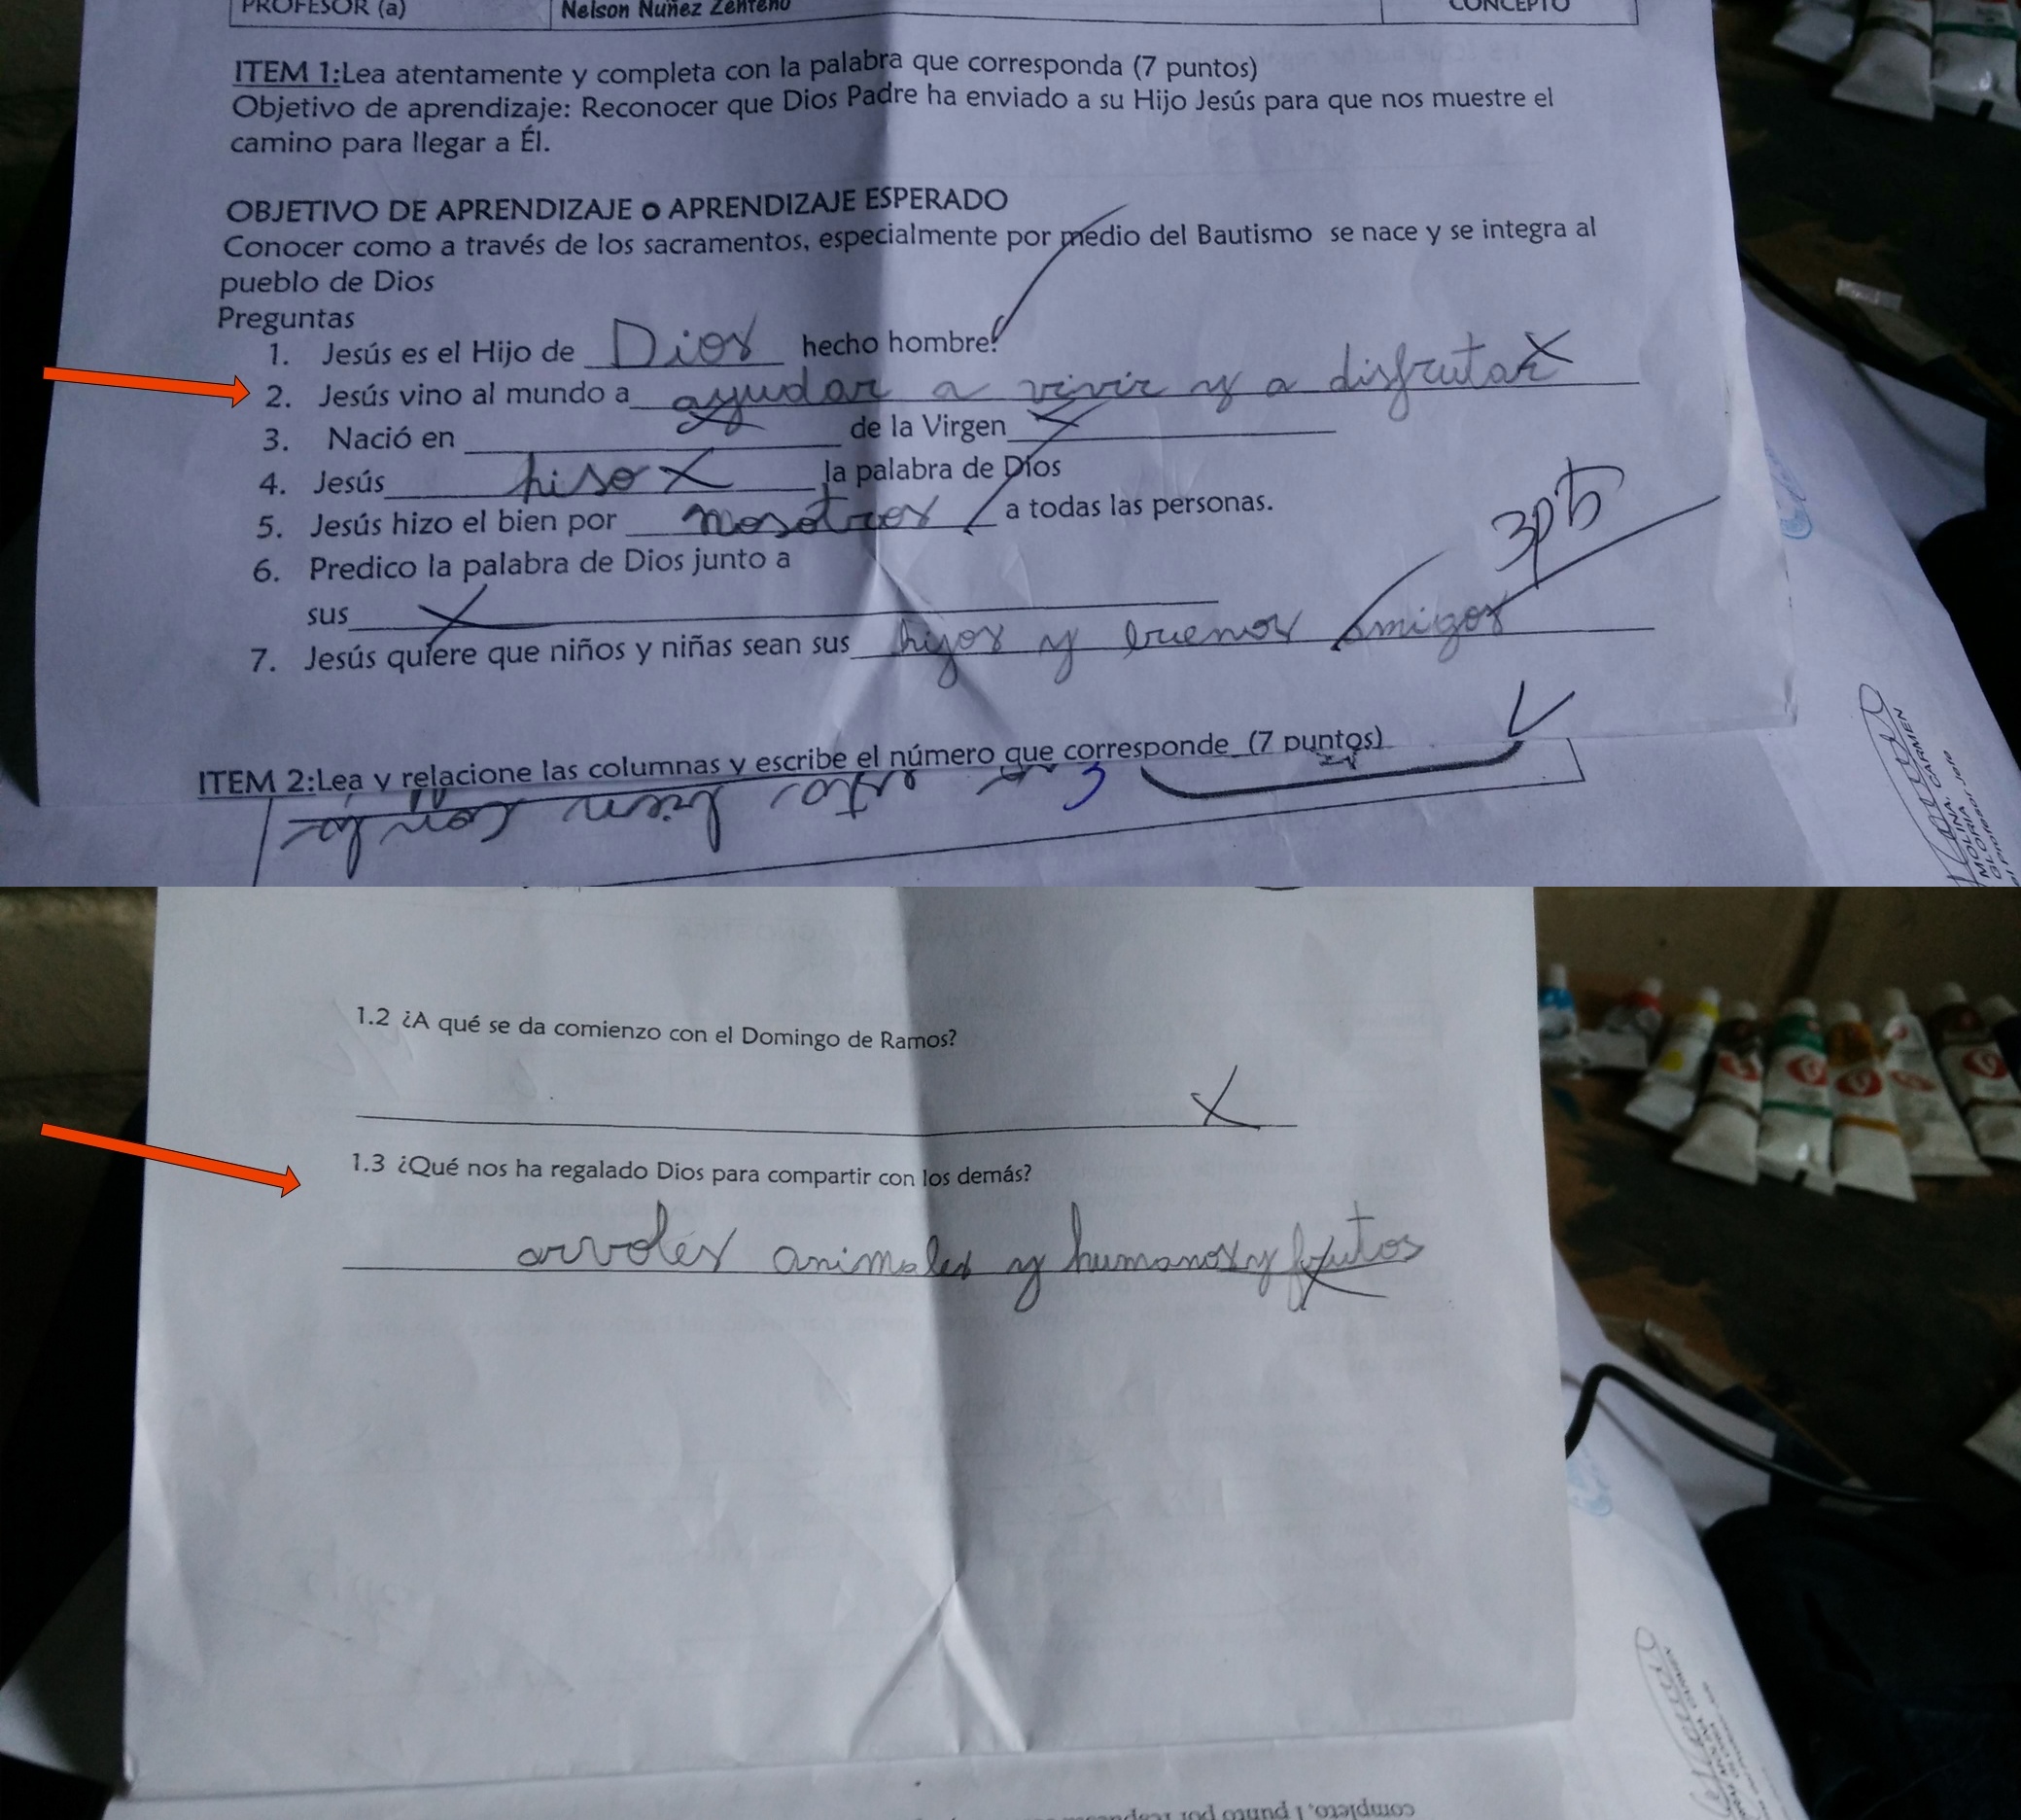 PROFESOR (a) Nelson Nuñez Zenteno CONCEPTO
ITEM 1:Lea atentamente y completa con la palabra que corresponda (7 puntos)
Objetivo de aprendizaje: Reconocer que Dios Padre ha enviado a su Hijo Jesús para que nos muestre el
camino para llegar a Él.
OBJETIVO DE APRENDIZAJE o APRENDIZAJE ESPERADO
Conocer como a través de los sacramentos, especialmente por medio del Bautismo se nace y se integra al
pueblo de Dios
Preguntas
1. Jesús es el Hijo de Dios hecho hombre.
2. Jesús vino al mundo a ayudar a vivir y a disfrutar
3. Nació en de la Virgen
4. Jesús hiso la palabra de Dios
5. Jesús hizo el bien por nosotros a todas las personas.
6. Predico la palabra de Dios junto a
sus
3pts
7. Jesús quiere que niños y niñas sean sus hijos y buenos amigos
ITEM 2:Lea y relacione las columnas y escribe el número que corresponde (7 puntos)
MOLINA, CARMEN
Profesor Jefe
1.2 ¿A qué se da comienzo con el Domingo de Ramos?
1.3 ¿Qué nos ha regalado Dios para compartir con los demás?
arvoles animales y humanos y frutos